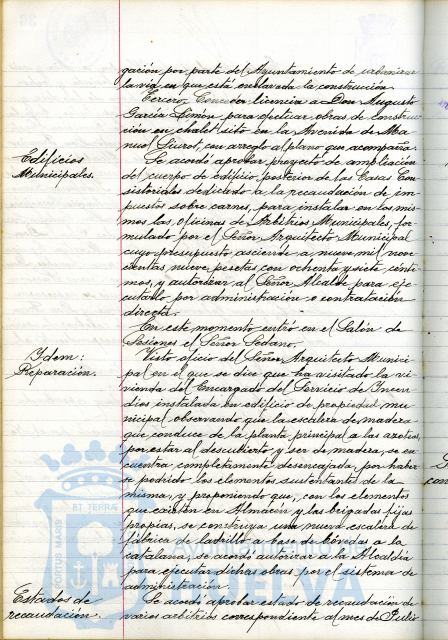 gación por parte del Ayuntamiento de urbanizar
la vía en que está enclavada la construcción.
Tercero: Conceder licencia a Don Augusto
García Simón, para efectuar obras de construc-
ción en chalet sito en la Avenida de Ma-
nuel Siurot, con arreglo al plano que acompaña.
Edificios
Municipales.
Se acordó aprobar proyecto de ampliación
del cuerpo de edificio posterior de las Casas Con-
sistoriales dedicado a la recaudación de im-
puestos sobre carnes, para instalar en los mis-
mos las oficinas de Arbitrios Municipales, for-
mulado por el Señor Arquitecto Municipal
cuyo presupuesto asciende a nueve mil nove-
cientas nueve pesetas con ochenta y siete cénti-
mos, y autorizar al Señor Alcalde para eje-
cutarlo por administración o contratación
directa.
En este momento entró en el Salón de
Sesiones el Señor Sedano.
Idem:
Reparación.
Visto oficio del Señor Arquitecto Munici-
pal en el que se dice que ha visitado la vi-
vienda del Encargado del Servicio de Incen-
dios instalada en edificio de propiedad mu-
nicipal observando que la escalera de madera
que conduce de la planta principal a las azoteas,
por estar al descubierto y ser de madera, se en-
cuentra completamente desencajada, por haber-
se podrido los elementos sustentantes de la
misma, y proponiendo que, con los elementos
que existen en Almacén y las brigadas fijas
propias, se construya una nueva escalera de
fábrica de ladrillo a base de bóvedas a la
catalana, se acordó autorizar a la Alcaldía
para ejecutar dichas obras por el sistema de
administración.
Estados de
recaudación.
Se acordó aprobar estado de recaudación de
varios arbitrios correspondiente al mes de Julio
PORTUS MARIS
ET TERRÆ
HUELVA